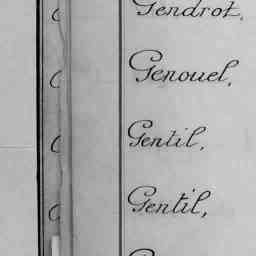 Gendrot,
Genouel,
Gentil,
Gentil,